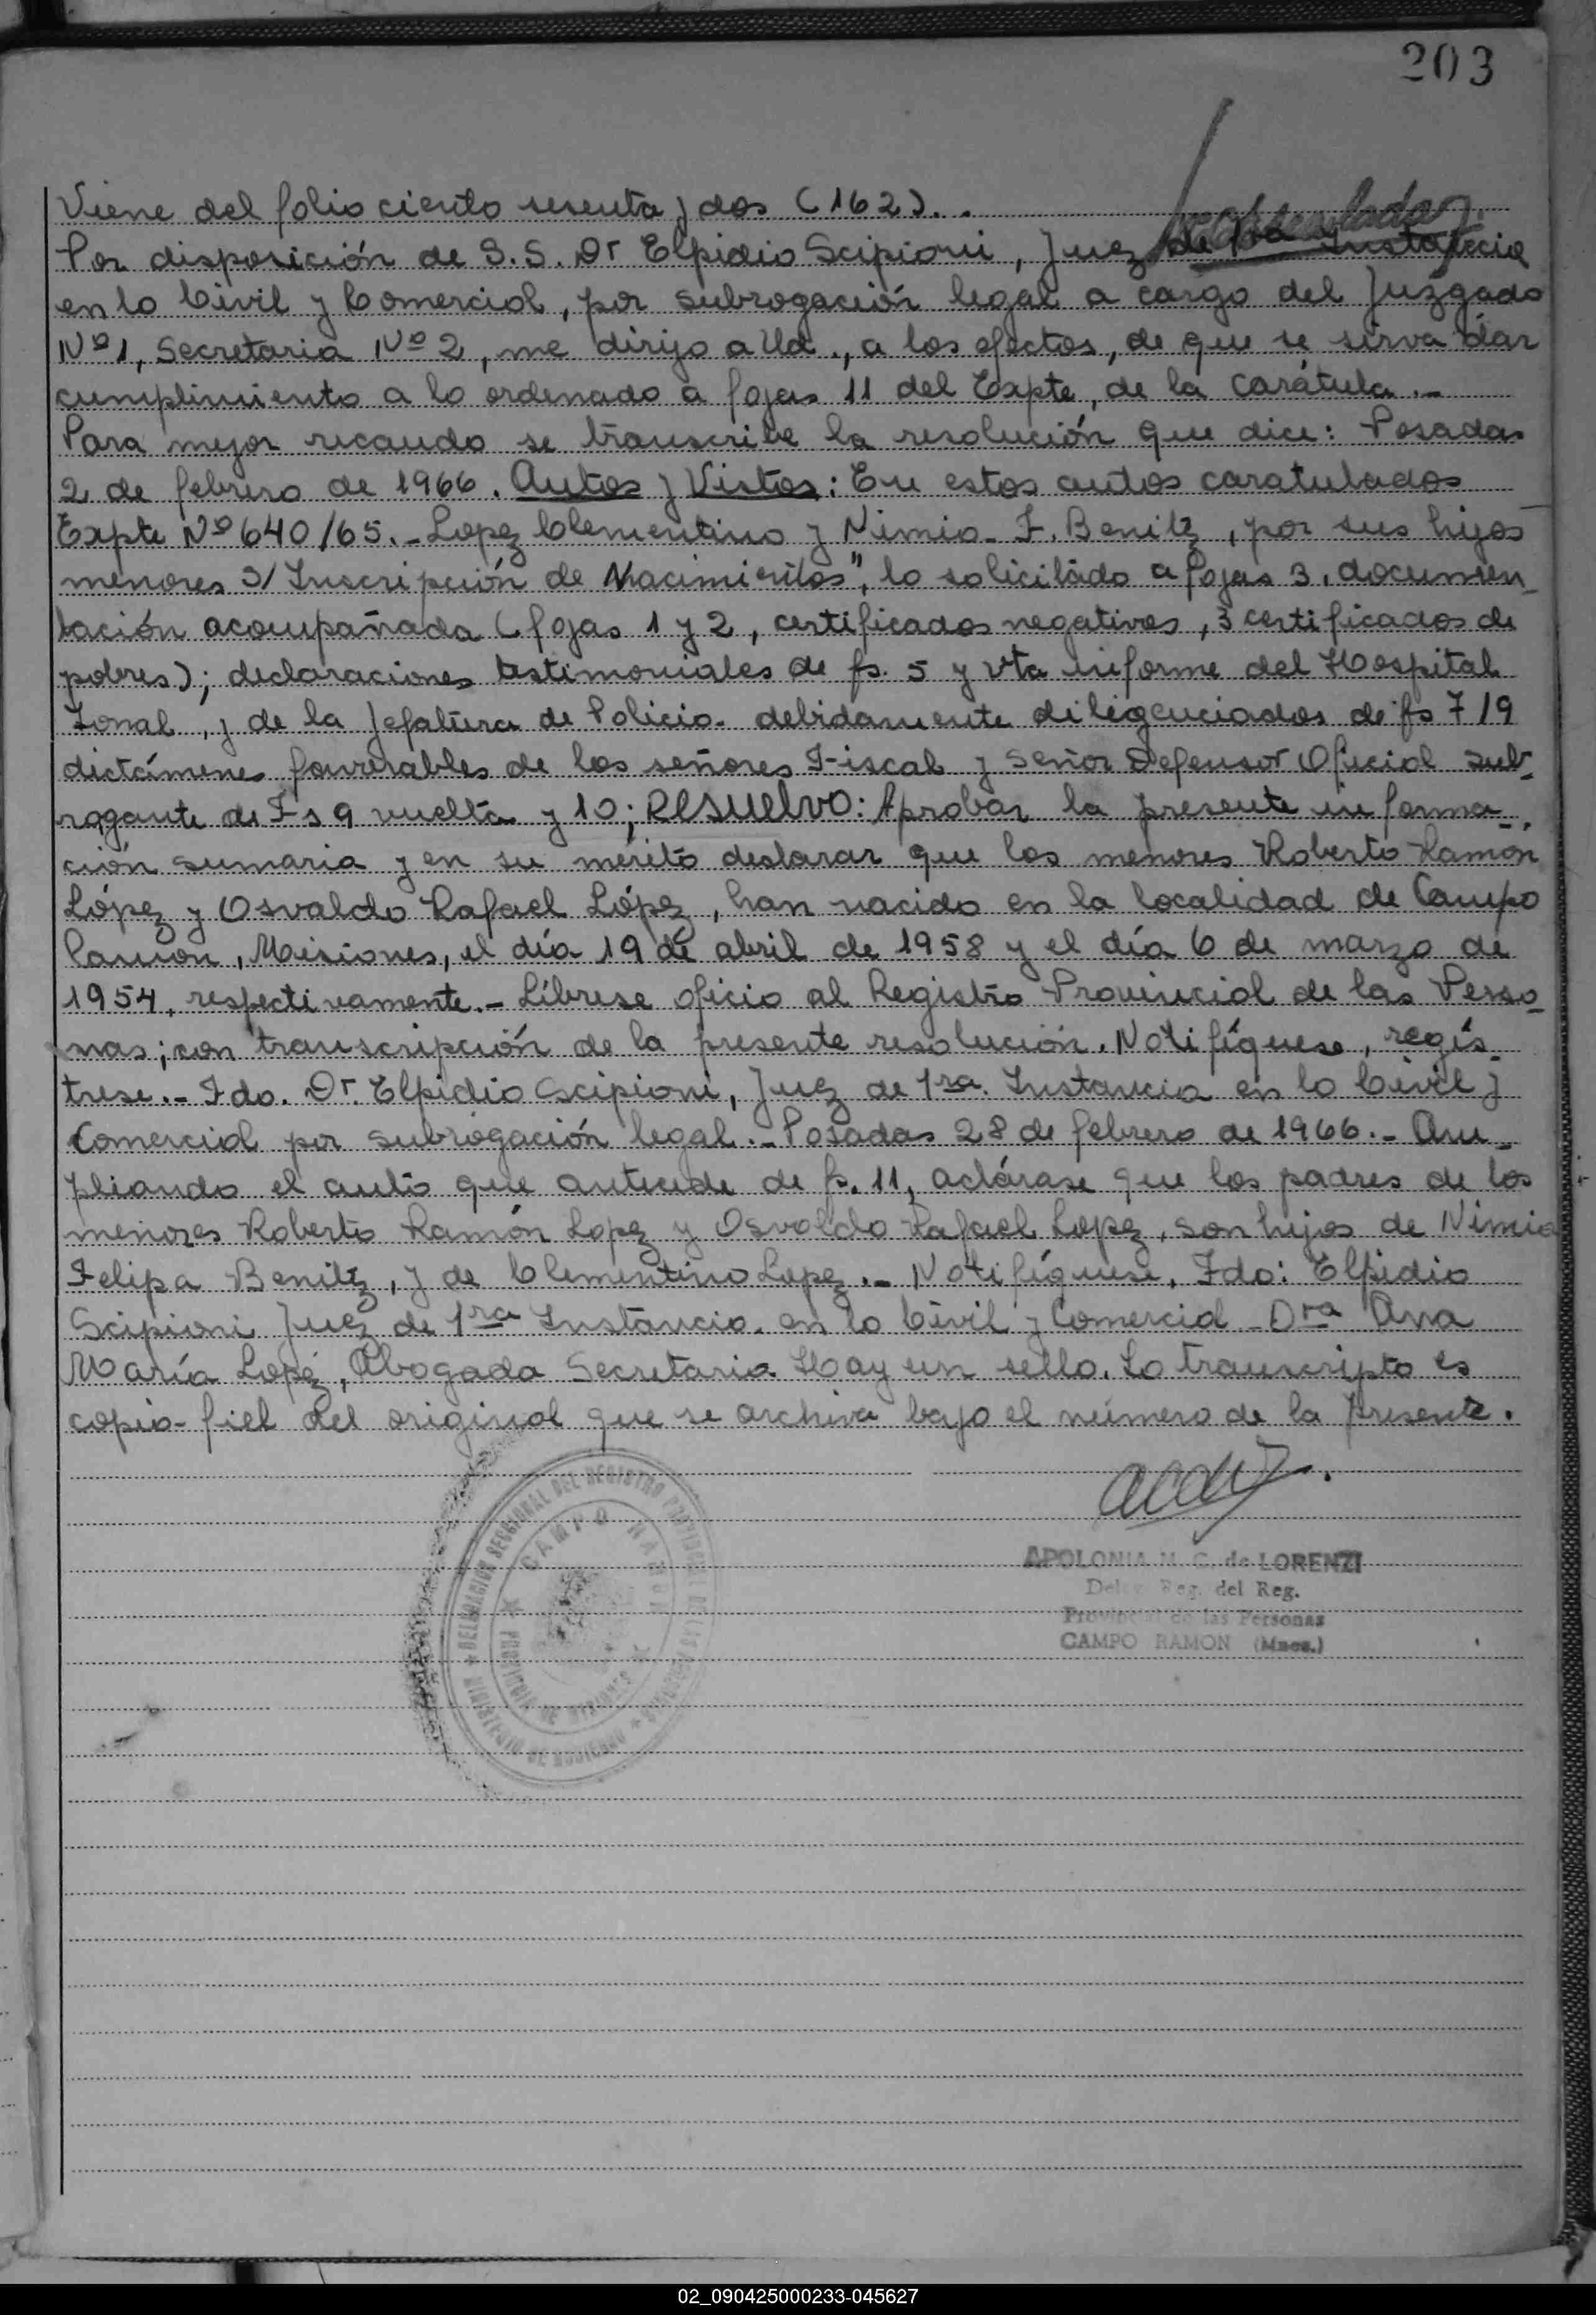 203
Viene del folio ciento sesenta y dos (162)..
Por disposición de S.S. Dr Elpidio Scipioni, Juez de 1ra Instancia
en lo Civil y Comercial, por subrogación legal a cargo del Juzgado
Nº 1, Secretaria Nº 2, me dirijo a Ud., a los efectos, de que se sirva dar
cumplimiento a lo ordenado a fojas 11 del Expte, de la carátula.-
Para mejor recaudo se transcribe la resolución que dice: Posadas
2 de febrero de 1966. Autos y Vistos: En estos autos caratulados
Expte Nº 640/65.- Lopez Clementino y Nimia F. Benitz, por sus hijos
menores S/ Inscripción de Nacimientos", lo solicitado a fojas 3, documen-
tación acompañada (fojas 1 y 2, certificados negativos, 3 certificados de
pobres); declaraciones testimoniales de fs. 5 y vta informe del Hospital
Zonal, y de la Jefatura de Policia debidamente diligenciados de fs 7/9
dictámenes favorables de los señores Fiscal y Señor Defensor Oficial sub-
rogante de Fs 9 vuelta y 10; RESUELVO: Aprobar la presente informa-
ción sumaria y en su mérito deslarar que los menores Roberto Ramón
López y Osvaldo Rafael López, han nacido en la localidad de Campo
Ramón, Misiones, el día 19 de abril de 1958 y el día 6 de marzo de
1954, respectivamente.- Líbrese oficio al Registro Provincial de las Perso-
nas; con transcripción de la presente resolución. Notifíquese, regís-
trese.- Fdo. Dr. Elpidio Scipioni, Juez de 1ra. Instancia en lo Civil y
Comercial por subrogación legal.- Posadas 28 de febrero de 1966.- Am-
pliando el auto que antecede de fs. 11, aclárase que los padres de los
menores Roberto Ramón Lopez y Osvaldo Rafael Lopez, son hijos de Nimia
Felipa Benitz, y de Clementino Lopez.- Notifíquese, Fdo: Elpidio
Scipioni Juez de 1ra Instancia en lo Civil y Comercial Dra Ana
María Lopéz, Abogada Secretaria Hay un sello. Lo transcripto es
copia fiel del original que se archiva bajo el número de la presente.
DELEGACION SECCIONAL DEL REGISTRO PROVINCIAL DE LAS PERSONAS
MINISTERIO DE GOBIERNO
CAMPO RAMON
PROVINCIA DE MISIONES
APOLONIA M. G. de LORENZI
Deleg. Reg. del Reg.
Provincial de las Personas
CAMPO RAMON (Mnes.)
02_090425000233-045627